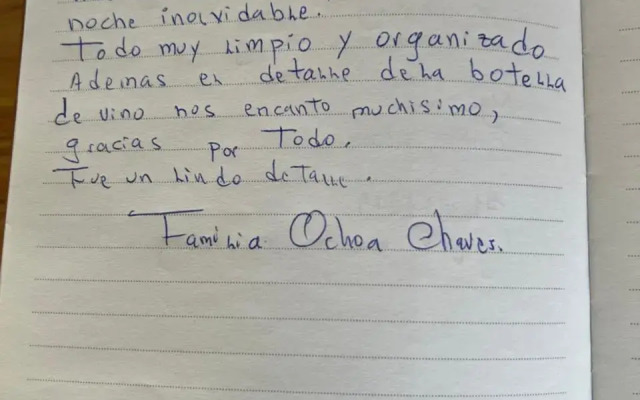 noche inolvidable.
Todo muy limpio y organizado
Ademas el detalle dela botella
de vino nos encanto muchisimo,
gracias por Todo.
Fue un lindo detalle.
Familia Ochoa Chaves.